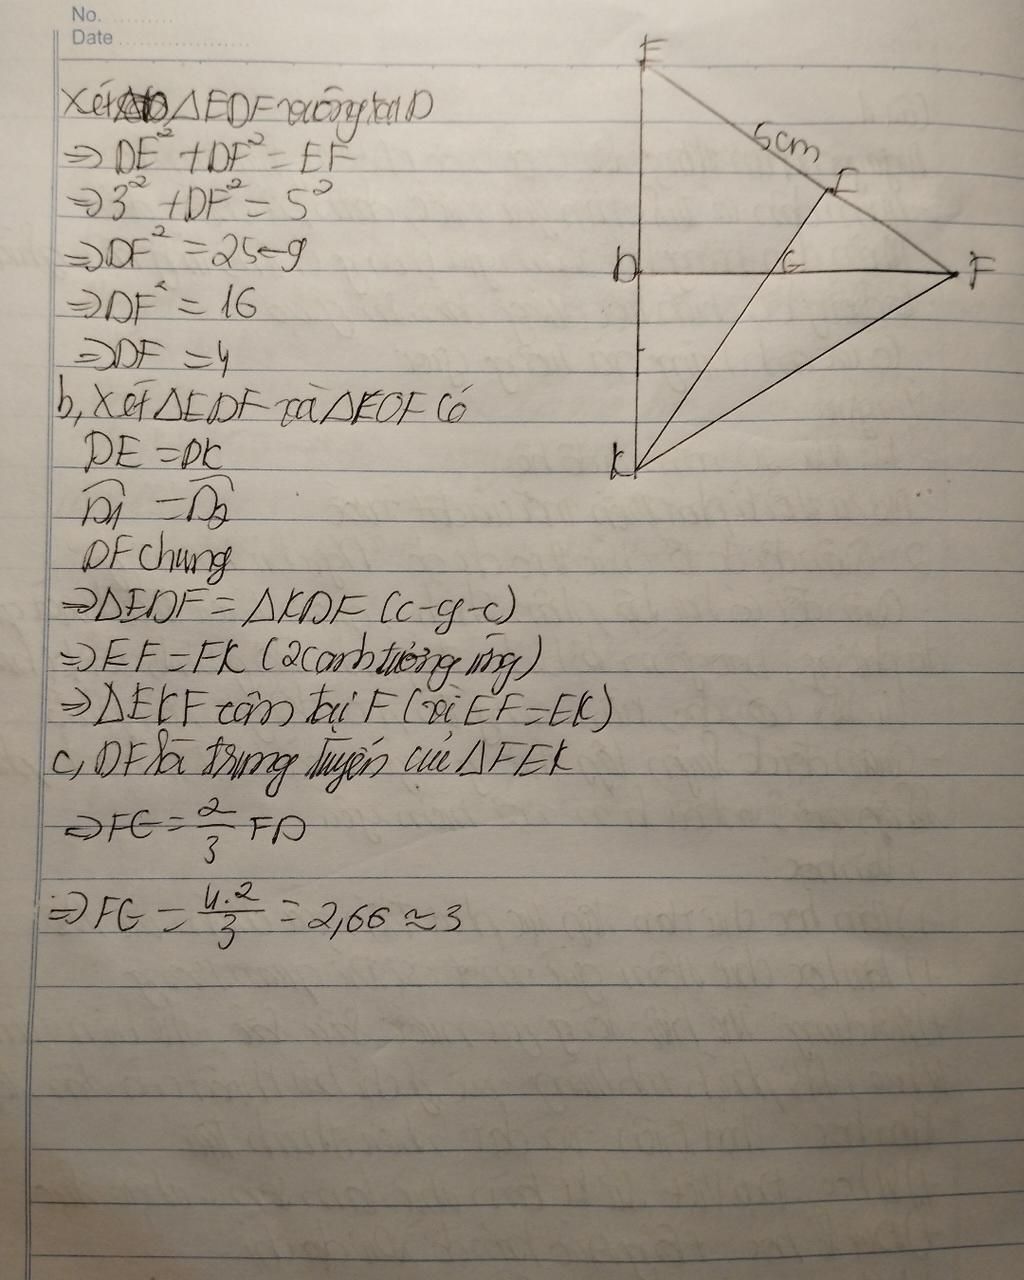 No.
Date
Xét ΔEDF vuông tại D
⇒ DE² + DF² = EF
⇒ 3² + DF² = 5²
⇒ DF² = 25 - 9
⇒ DF² = 16
⇒ DF = 4
b, Xét ΔEDF và ΔEOF Có
DE = DK
D1 = D2
DF chung
⇒ ΔEDF = ΔKDF (c-g-c)
⇒ EF = FK (2 cạnh tương ứng)
⇒ ΔEKF cân tại F (vì EF = EK)
c, DF là trung tuyến củ ΔFEK
⇒ FG = 2/3 FD
⇒ FG = 4.2/3 = 2,66 ≈ 3
E
5cm
I
D
G
F
K